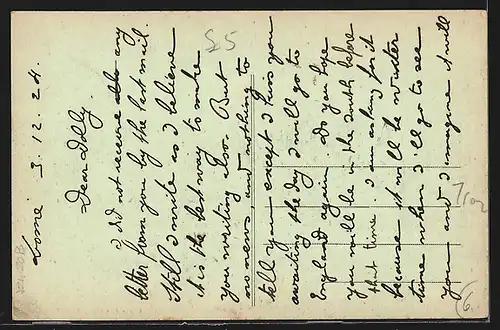 Lome 3.12.24.
Dear Dolly.
I did not receive any
letter from you by the last mail.
Still I write as I believe
it is the best way to make
you writing also. But
no news and nothing to
tell you except I kiss you
awaiting the day I will go to
England again. Do you hope
you will be in the south before
that time. I am asking for it
because it will be winter
time when I'll go to see
you and I imagine it will
25
6